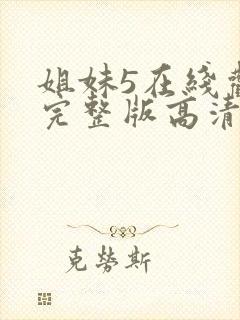 姐妹5在綫
完整版高清
克勞斯